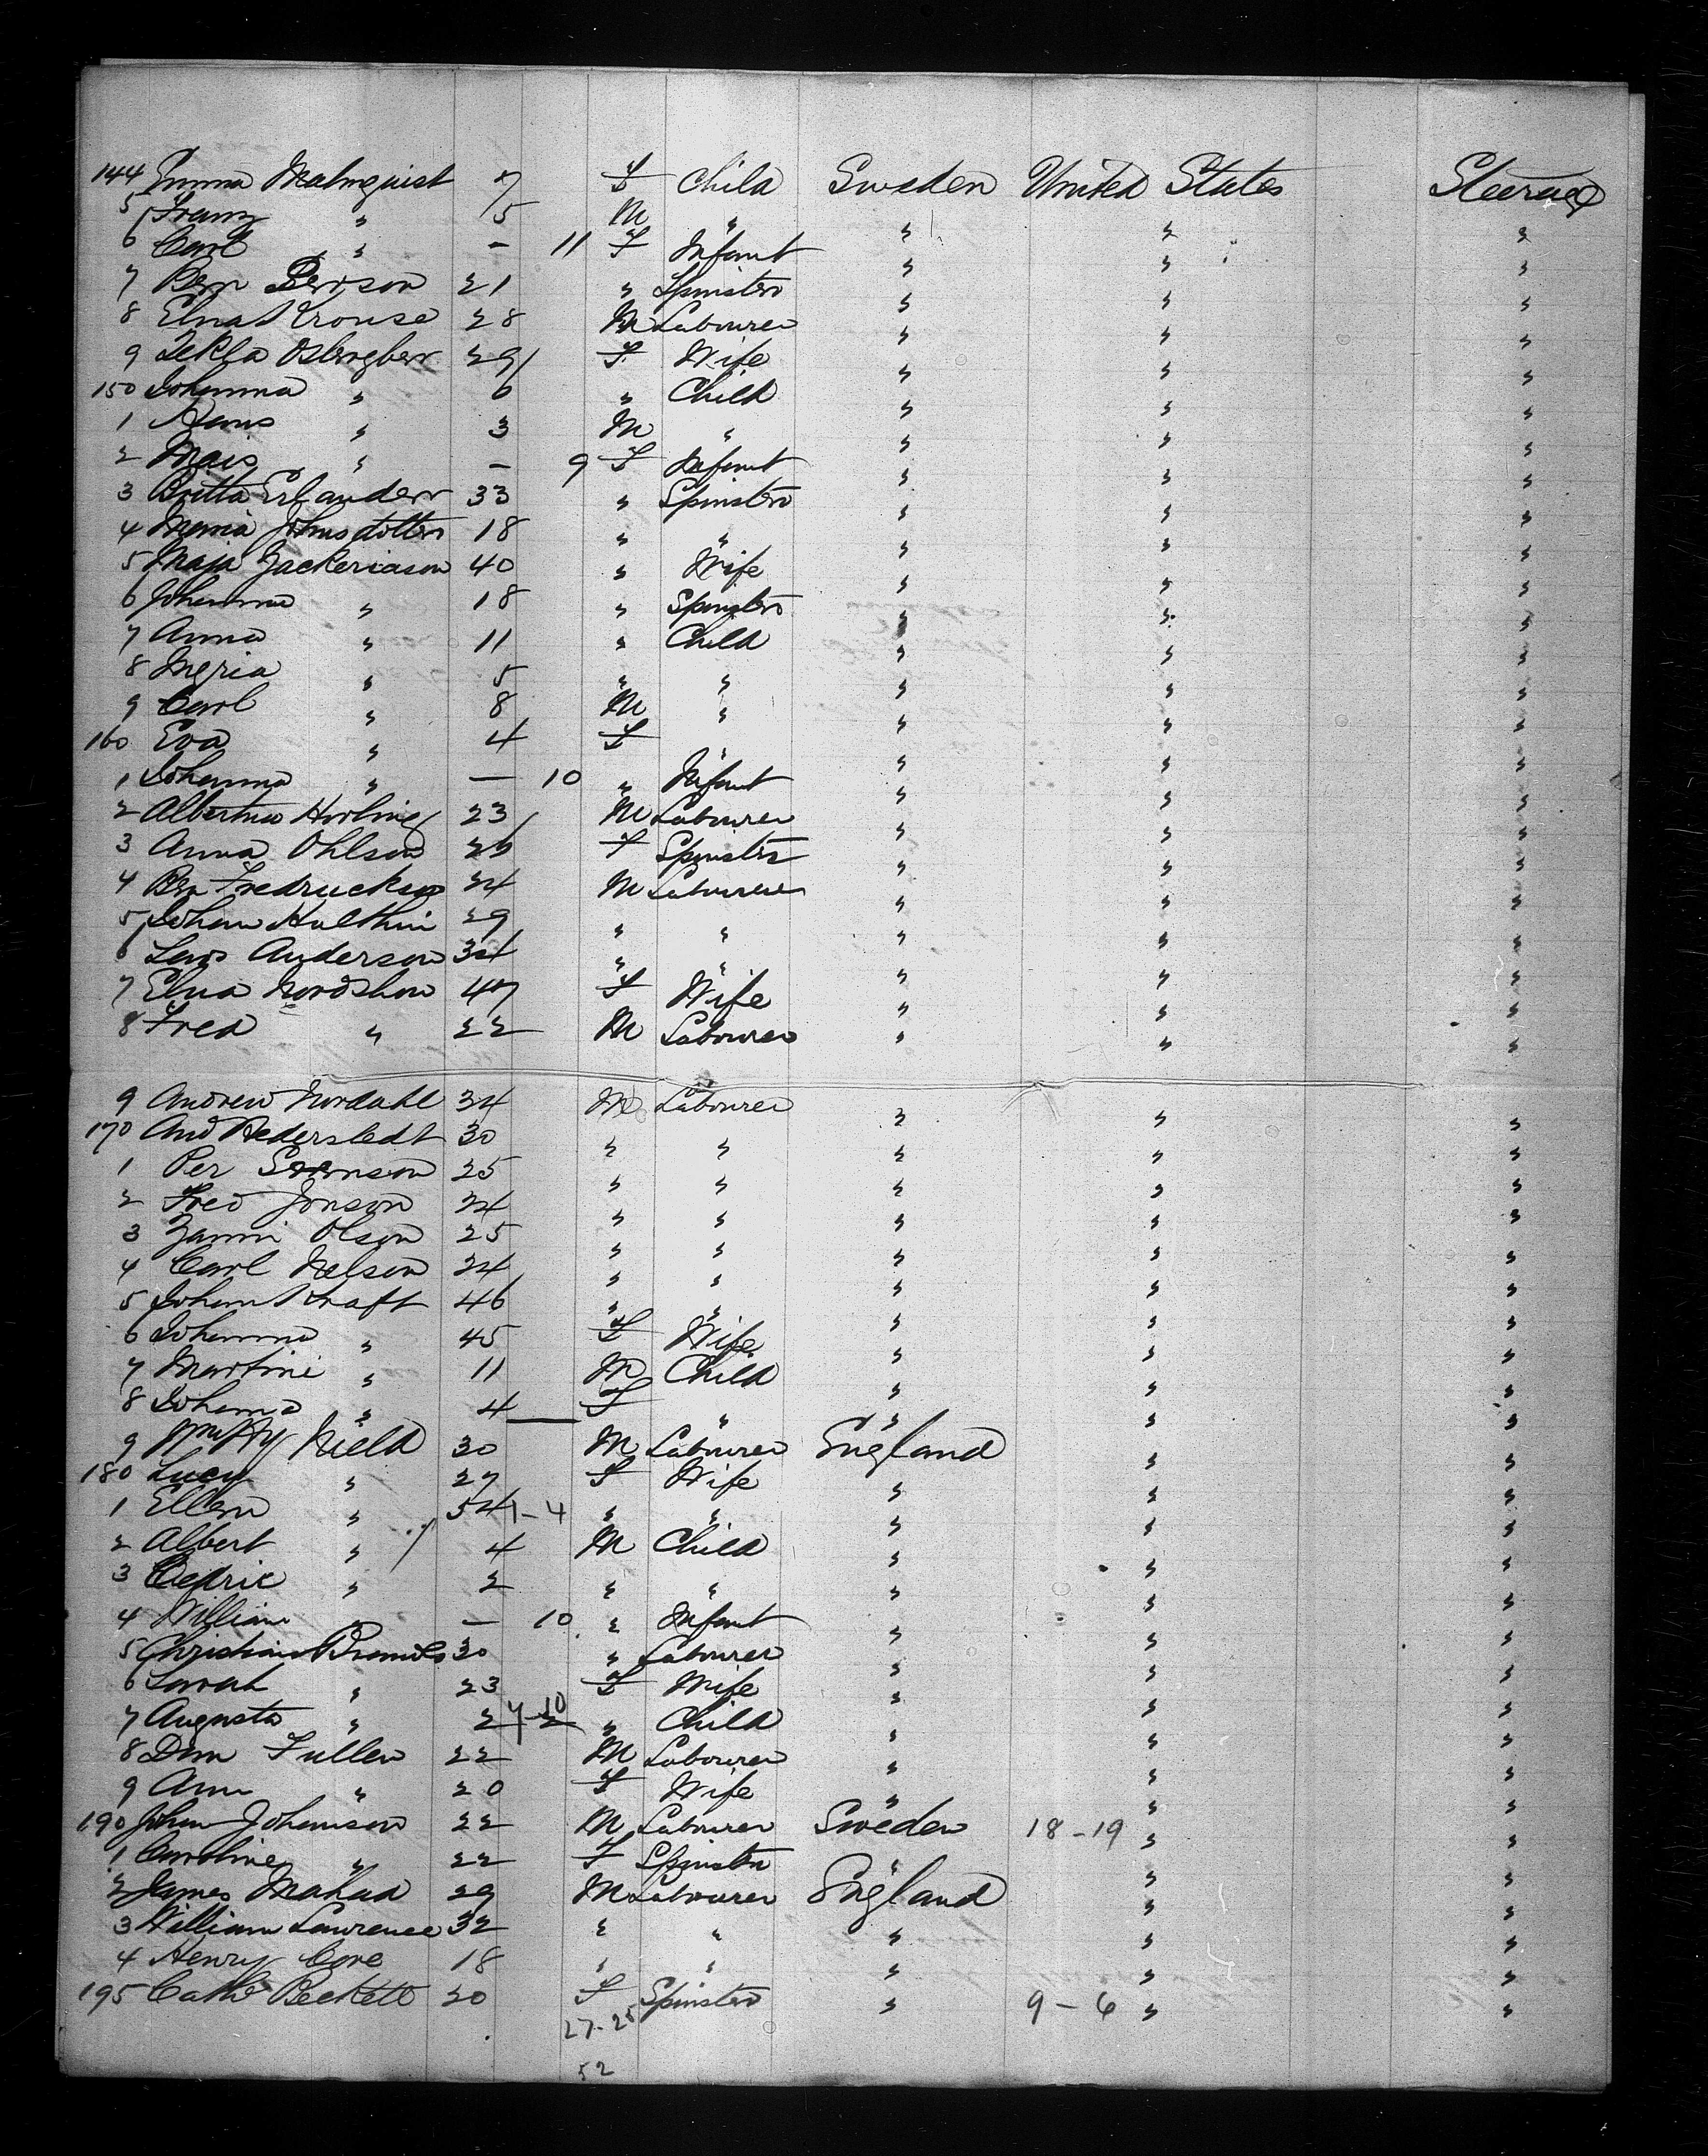 144 Emma Malmquist 7 F Child Sweden United States Steerage
5 Franz " 5 M " " " "
6 Carl " - 11 F Infant " " "
7 Bern Berson 21 " Spinster " " "
8 Elna Krouse 28 M Labourer " " "
9 Tekla 29 F Wife " " "
150 Johanna " 6 " Child " " "
1 Hans " 3 M " " " "
2 Mais " - 9 F Infant " " "
3 Britta 33 " Spinster " " "
4 Maria Johnsdotter 18 " " " " "
5 Maja Zackeriason 40 " Wife " " "
6 Johanna " 18 " Spinster " " "
7 Anna " 11 " Child " " "
8 Ingria " 5 " " " " "
9 Carl " 8 M " " " "
160 Eva " 4 F " " " "
1 Johanna " - 10 " Infant " " "
2 Albertus 23 M Labourer " " "
3 Anna Ohlson 26 F Spinster " " "
4 Ben Fredruckson 24 M Labourer " " "
5 Johan Hulthin 29 " " " " "
6 Lars Anderson 34 " " " " "
7 Elna Nordshow 47 F Wife " " "
8 Fred " 22 M Labourer " " "
9 Andrew Nordahl 34 M Labourer " " "
170 And Hederstedt 30 " " " " "
1 Per Swenson 25 " " " " "
2 Fred Jonson 24 " " " " "
3 Zamri Olson 25 " " " " "
4 Carl Nelson 24 " " " " "
5 Johan Kraft 46 " " " " "
6 Johanna " 45 F Wife " " "
7 Martini " 11 M Child " " "
8 Johana " 4 F " " " "
9 Wm Hy Nield 30 M Labourer England "
180 Lucy " 27 F Wife " " "
1 Ellen " 54 1-4 " " " " "
2 Albert " 4 M Child " " "
3 Cedric " 2 " " " " "
4 William " - 10 " Infant " " "
5 Christian 30 " Labourer " " "
6 Sarah " 23 F Wife " " "
7 Augusta " 2 7-10 2 " Child " " "
8 Dan Fuller 22 M Labourer " " "
9 Ann " 20 F Wife " " "
190 John Johanson 22 M Labourer Sweden 18-19 " "
1 Caroline " 22 F Spinster " " "
2 James 29 M Labourer England " "
3 William Lawrence 32 " " " " "
4 Henry Core 18 " " " " "
195 Cathe Beckett 20 F Spinster " 9-6 " "
27-25
52